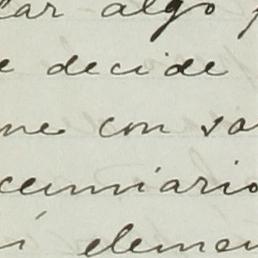 lar algo p
e decide
me con sa
cunniario
í elemen